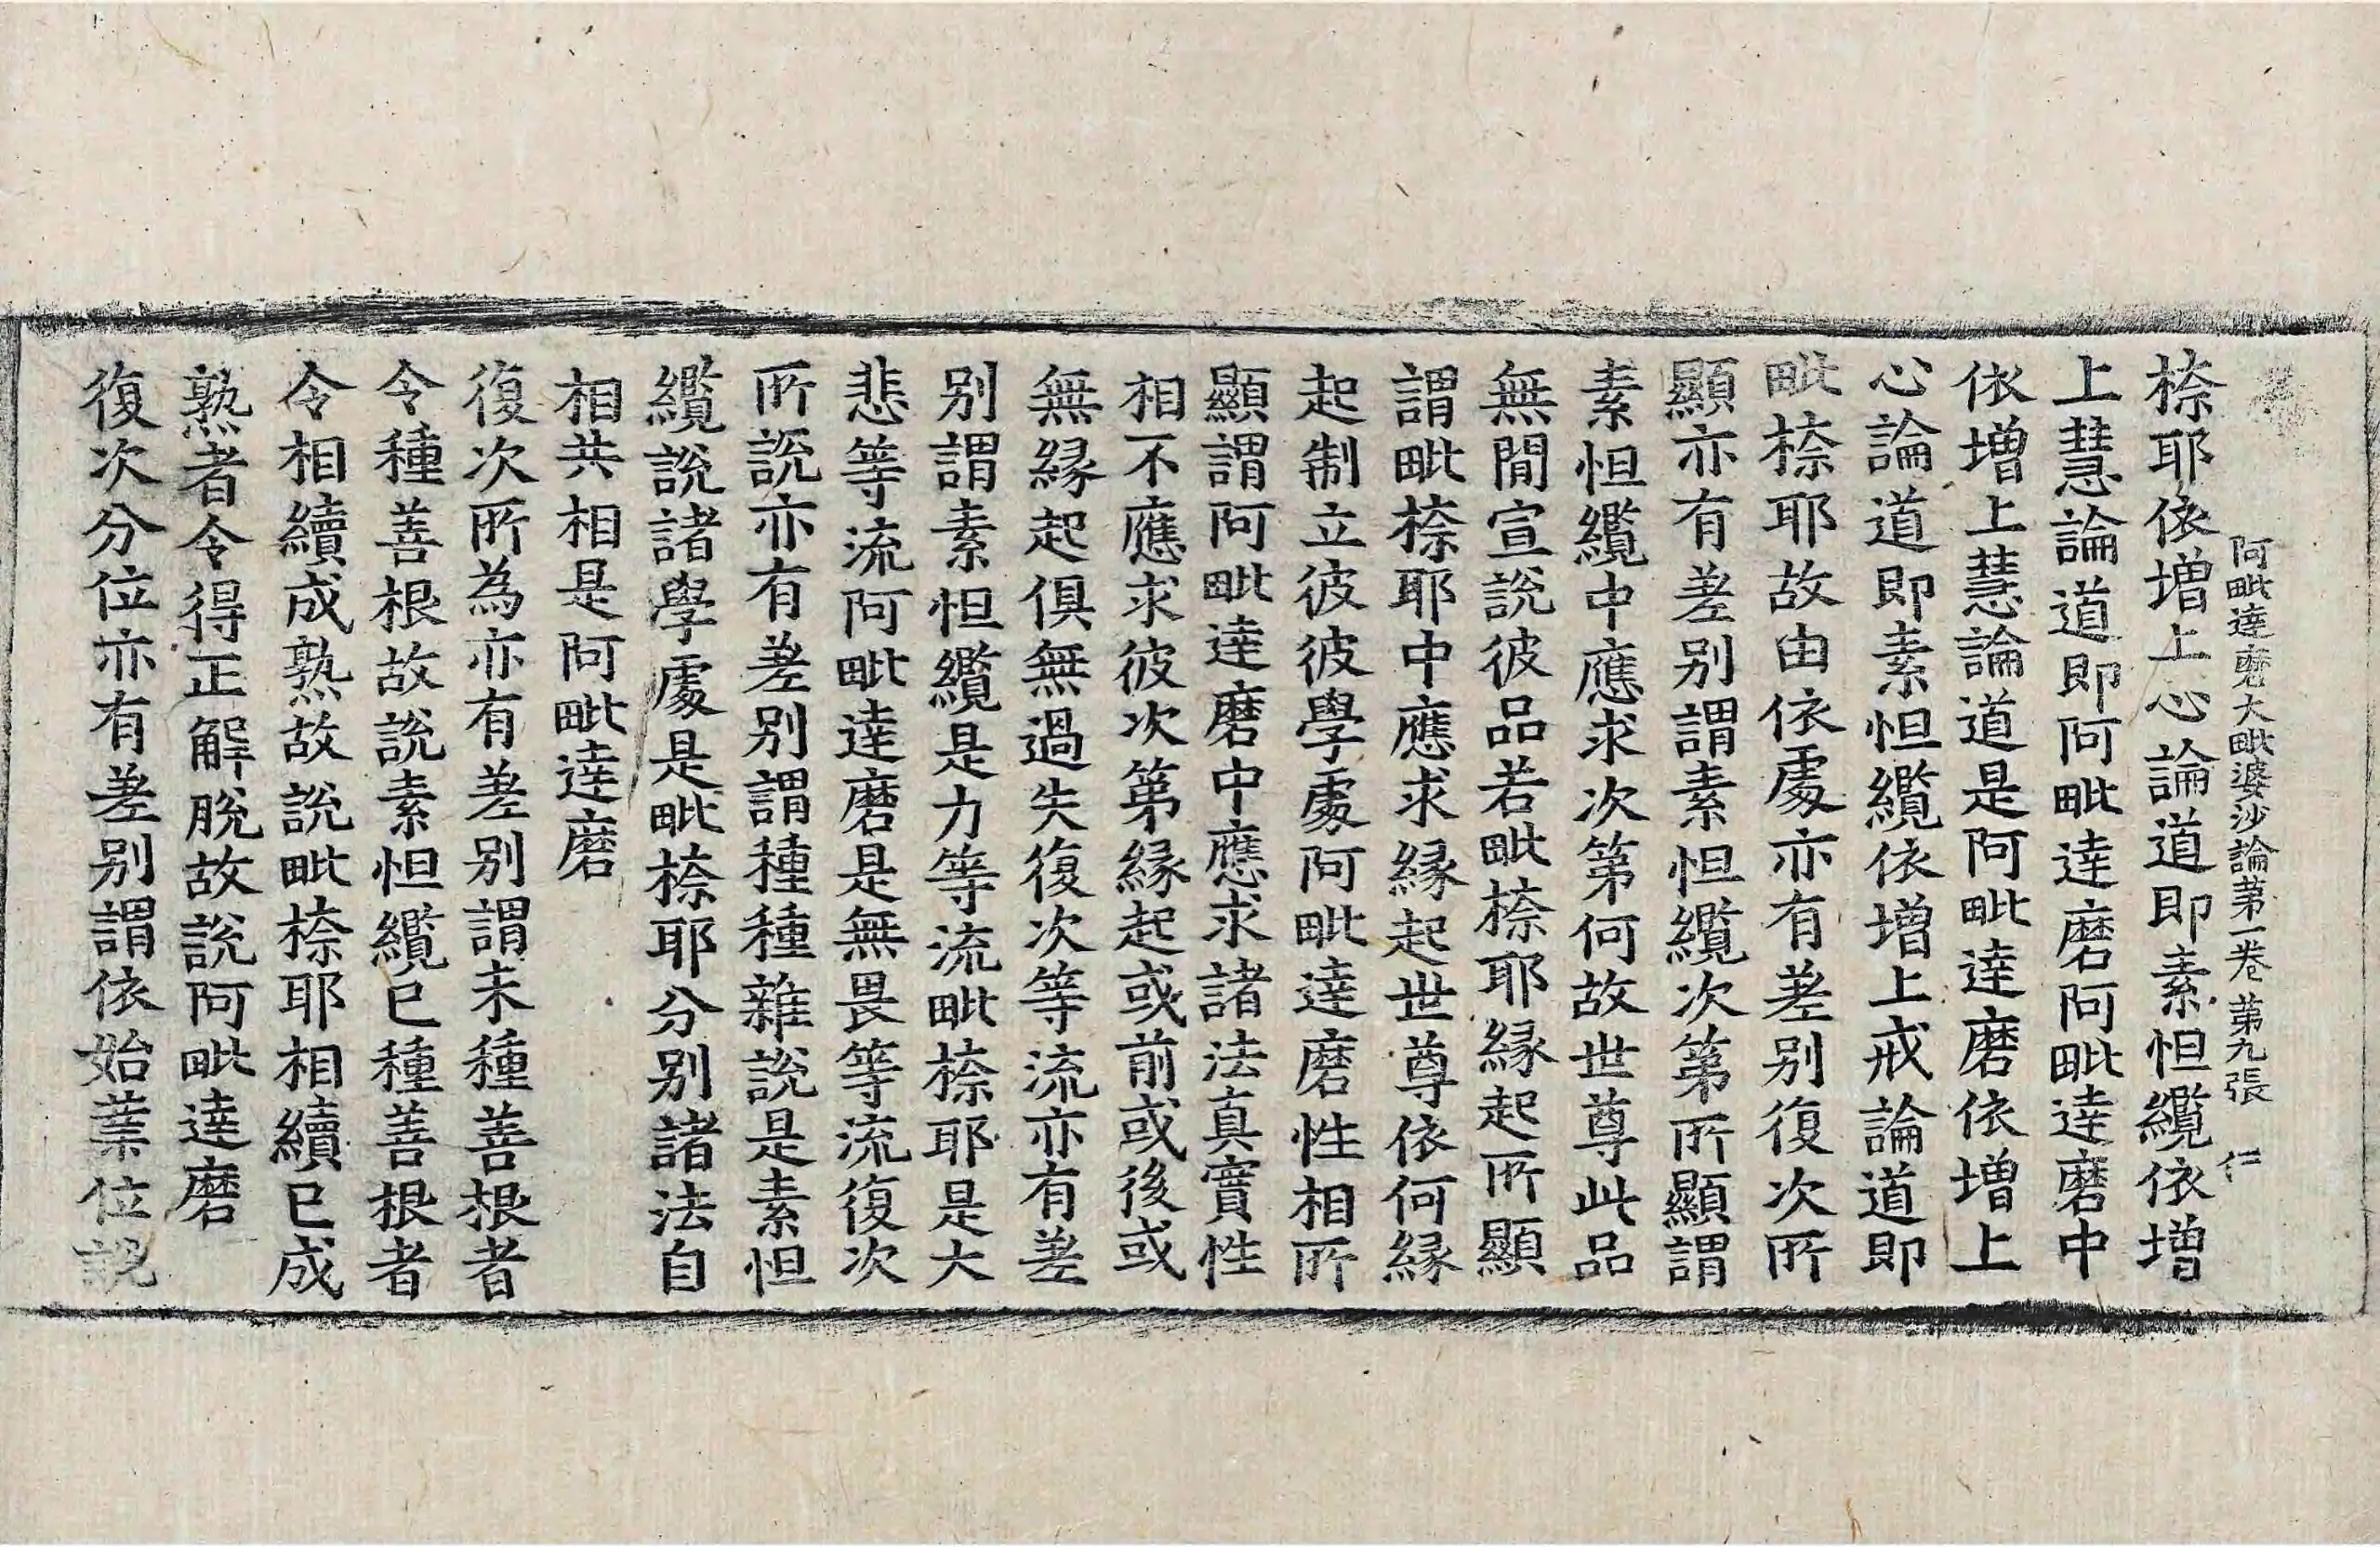 阿毗達磨大毗婆沙論第一卷 第九張 仁
㮈耶依增上心論道即素怛纜依增
上慧論道即阿毗達磨阿毗達磨中
依增上慧論道是阿毗達磨依增上
心論道即素怛纜依增上戒論道即
毗㮈耶故由依處亦有差別復次所
顯亦有差別謂素怛纜次第所顯謂
素怛纜中應求次第何故世尊此品
無間宣說彼品若毗㮈耶緣起所顯
謂毗㮈耶中應求緣起世尊依何緣
起制立彼彼學處阿毗達磨性相所
顯謂阿毗達磨中應求諸法真實性
相不應求彼次第緣起或前或後或
無緣起俱無過失復次等流亦有差
別謂素怛纜是力等流毗㮈耶是大
悲等流阿毗達磨是無畏等流復次
所說亦有差別謂種種雜說是素怛
纜說諸學處是毗㮈耶分別諸法自
相共相是阿毗達磨
復次所為亦有差別謂未種善根者
令種善根故說素怛纜已種善根者
令相續成熟故說毗㮈耶相續已成
熟者令得正解脫故說阿毗達磨
復次分位亦有差別謂依始業位說